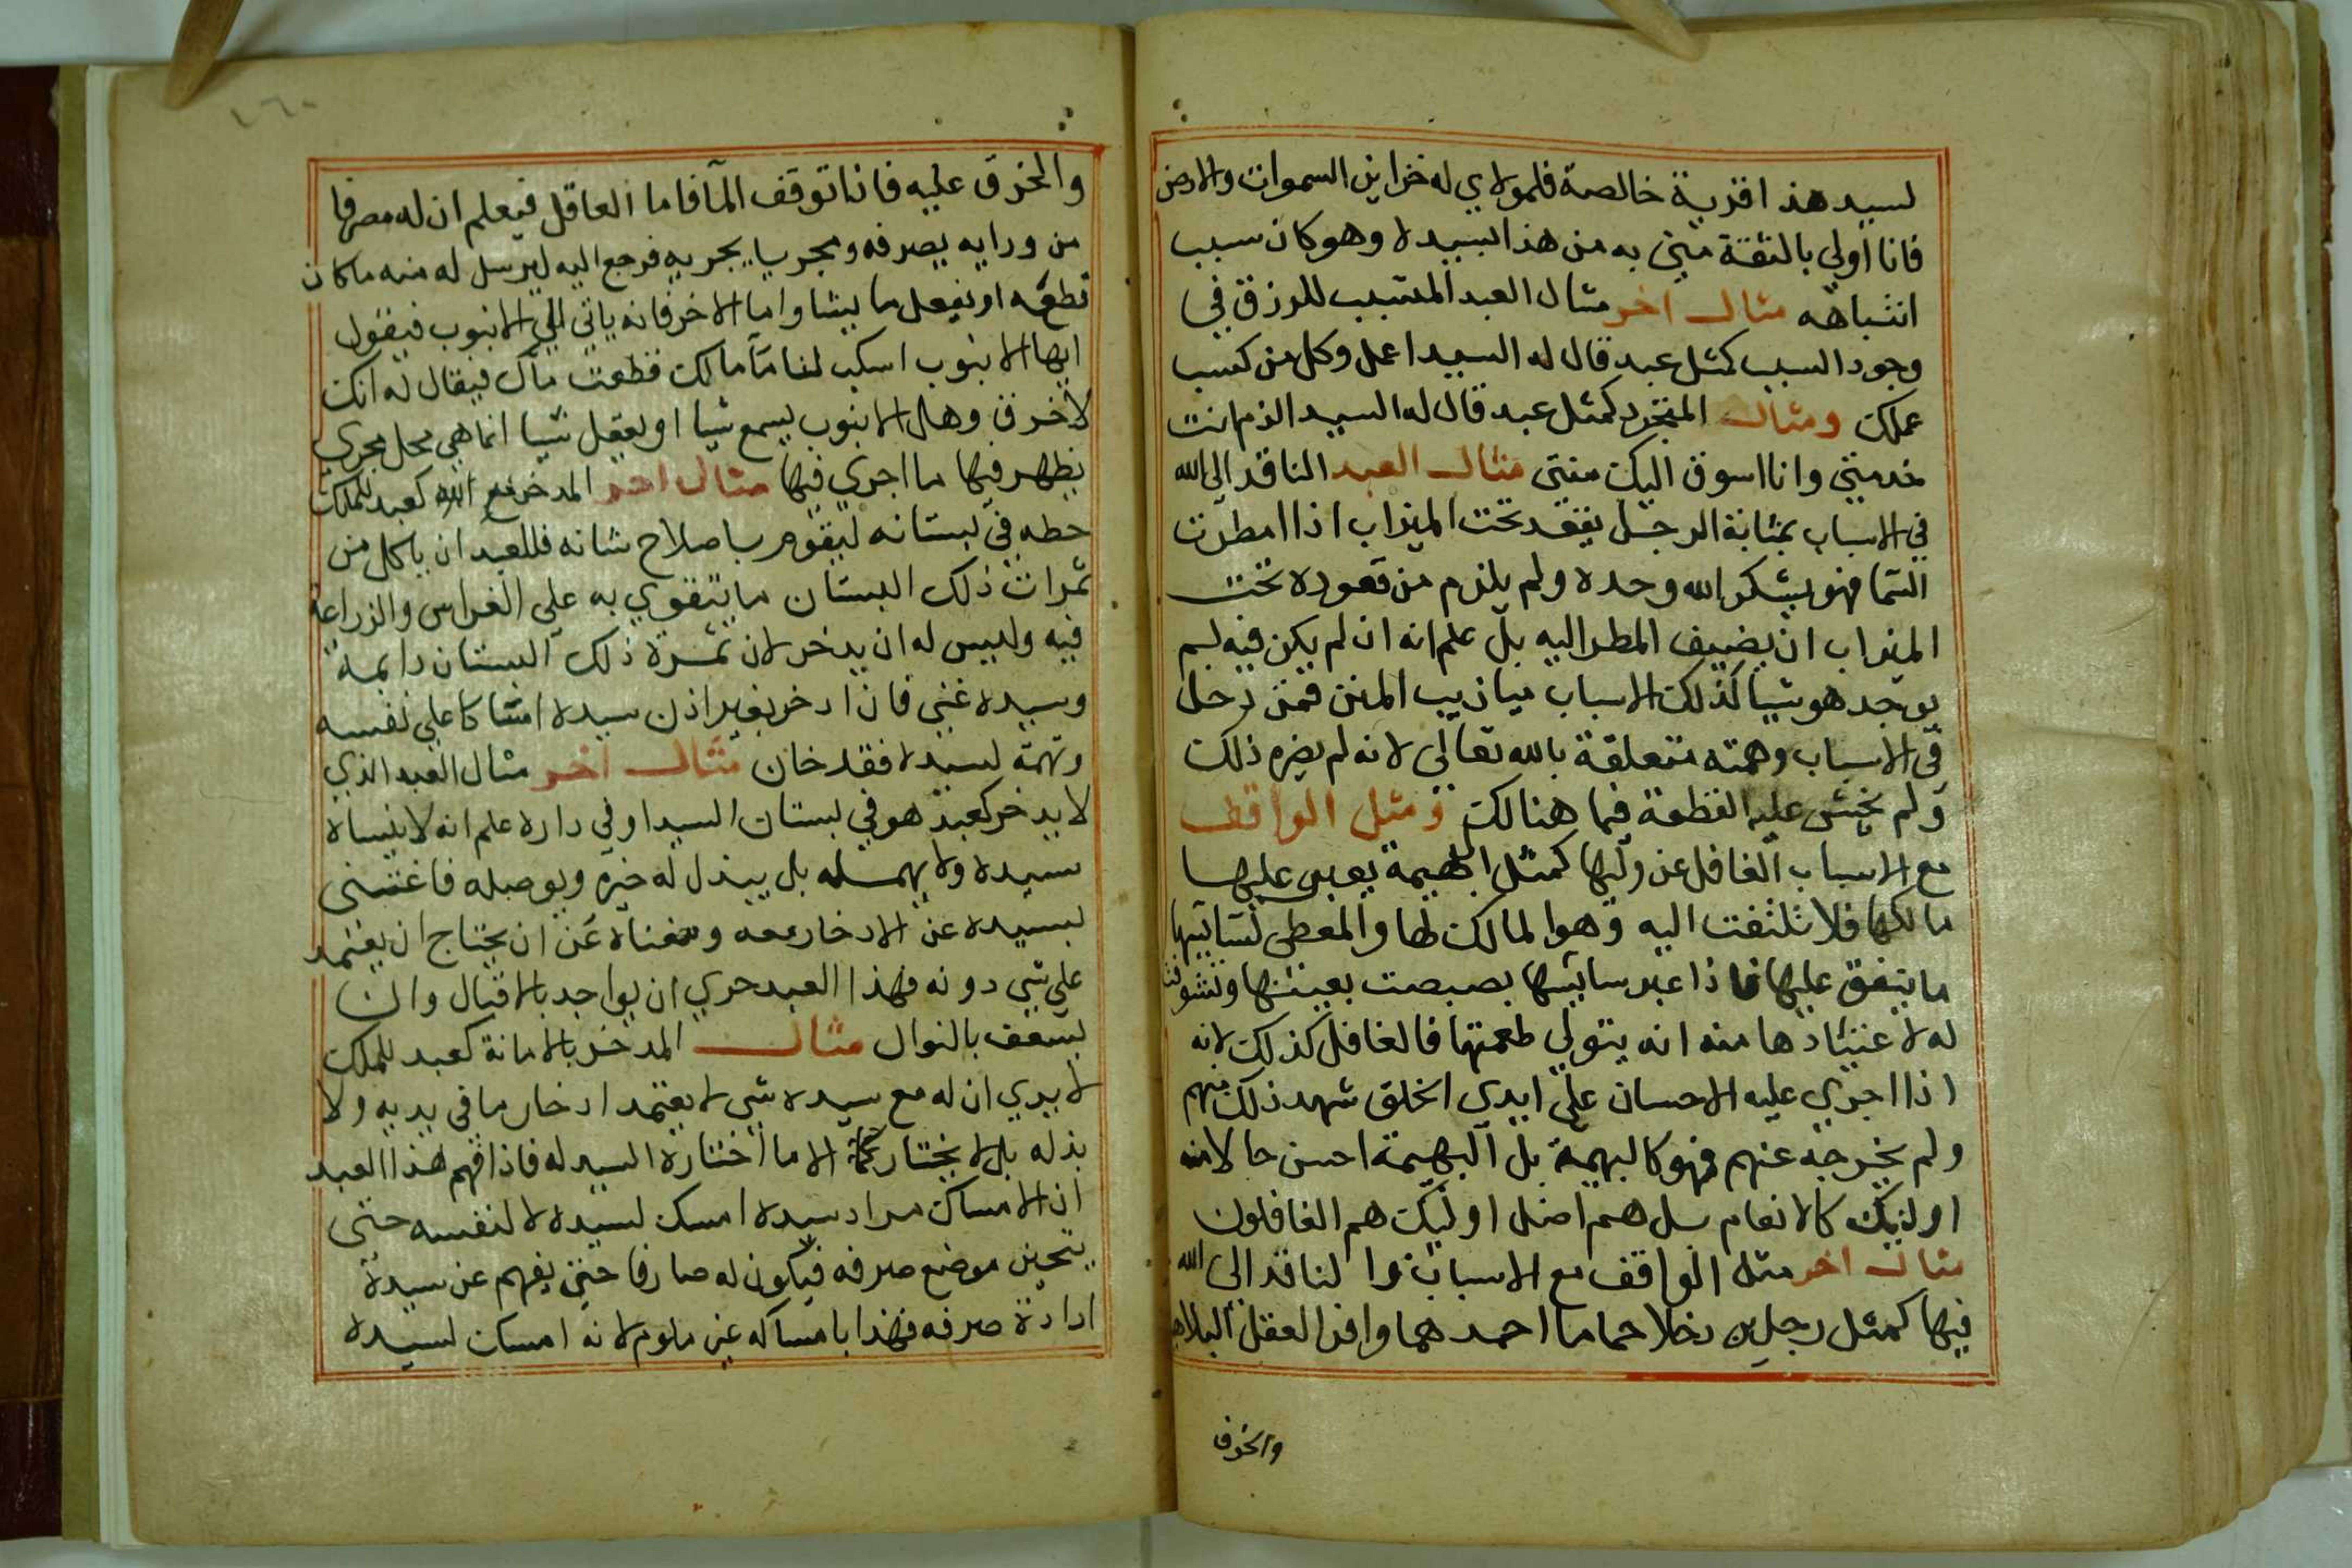 لسيد هذا قرية خالصة فلمولاي له خزاين السموات والارض
فانا اولي بالثقة مني به من هذا بسيده وهو كان سبب
انتباهه مثال اخر مثال العبد المتسبب للرزق في
وجود السبب كمثل عبد قال له السيد اعمل وكل من كسب
عملك ومثال المتجرد كمثل عبد قال له السيد الزم انت
خدمتي وانا اسوق اليك منتي مثال العبد الناقد الي الله
في الاسباب بمثابة الرجل يقعد تحت الميزاب اذا امطرت
السما فهو يشكر الله وحده ولم يلزم من قعوده تحت
الميزاب ان يضيف المطر اليه بل علم انه ان لم يكن فيه لم
يوجد هو شيا كذلك الاسباب ميازيب المنن فمن دخل
في الاسباب وهمته متعلقة بالله تعالي لانه لم يضره ذلك
ولم يخش عليه القطعة فيما هنالك ومثل الواقف
مع الاسباب الغافل عن وليها كمثل البهيمة يعبر عليها
مالكها فلا تلتفت اليه وهو المالك لها والمعطي لسايسها
ما ينفق عليها فاذا عبر سايسها بصبصت بعينها وتشوفت
له لاعتيادها منه انه يتولي طعمتها فالغافل كذلك لانه
اذا اجري عليه الاحسان علي ايدي الخلق شهد ذلك منهم
ولم يخرجه عنهم فهو كالبهيمة بل البهيمة احسن حالا منه
اوليك كالانعام بل هم اضل اوليك هم الغافلون
مثال اخر مثل الواقف مع الاسباب والناقد الي الله
فيها كمثل رجلين دخلا حماما احدهما وافر العقل البلاهة
والخرق
والخرق عليه فاذا توقف المآ فاما العاقل فيعلم ان له مصرفا
من ورايه يصرفه ومجريا يجريه فرجع اليه ليرسل له منه ما كان
قطعه او يفعل ما يشا واما الاخر فانه ياتي الي الانبوب فيقول
ايها الانبوب اسكب لنا مآ مالك قطعت مآك فيقال له انك
لاخرق وهل الانبوب يسمع شيا او يعقل شيا انما هي محل مجري
يظهر فيها ما اجري فيها مثال اخر المدخر مع الله كعبد للملك
حطه في بستانه ليقوم باصلاح شانه فللعبد ان ياكل من
ثمرات ذلك البستان ما يتقوي به علي الغراس والزراعة
فيه وليس له ان يدخر لان ثمرة ذلك البستان دايمة
وسيده غني فان ادخر بغير اذن سيده امساكا علي نفسه
وتهمة لسيده فقد خان مثال اخر مثال العبد الذي
لا يدخر كعبد هو في بستان السيد او في داره علم انه لا ينساه
سيده ولا يهمله بل يبذل له خيره ويوصله فاغتني
بسيده عن الادخار معه وبغناه عن ان يحتاج ان يعتمد
علي شي دونه فهذا العبد حري ان يواجد بالاقبال وان
يسعف بالنوال مثال المدخر بالامانة كعبد للملك
لا يري ان له مع سيده شي لا يعتمد ادخار ما في يديه ولا
بذله بل لا يختار الا ما اختاره السيد له فاذا فهم هذا العبد
ان الامساك مراد سيده امسك لسيده لا لنفسه حتي
يتحين موضع صرفه فيكون له صارفا حتي يفهم عن سيده
ارادة صرفه فهذا بامساكه غير ملوم لانه امسك لسيده